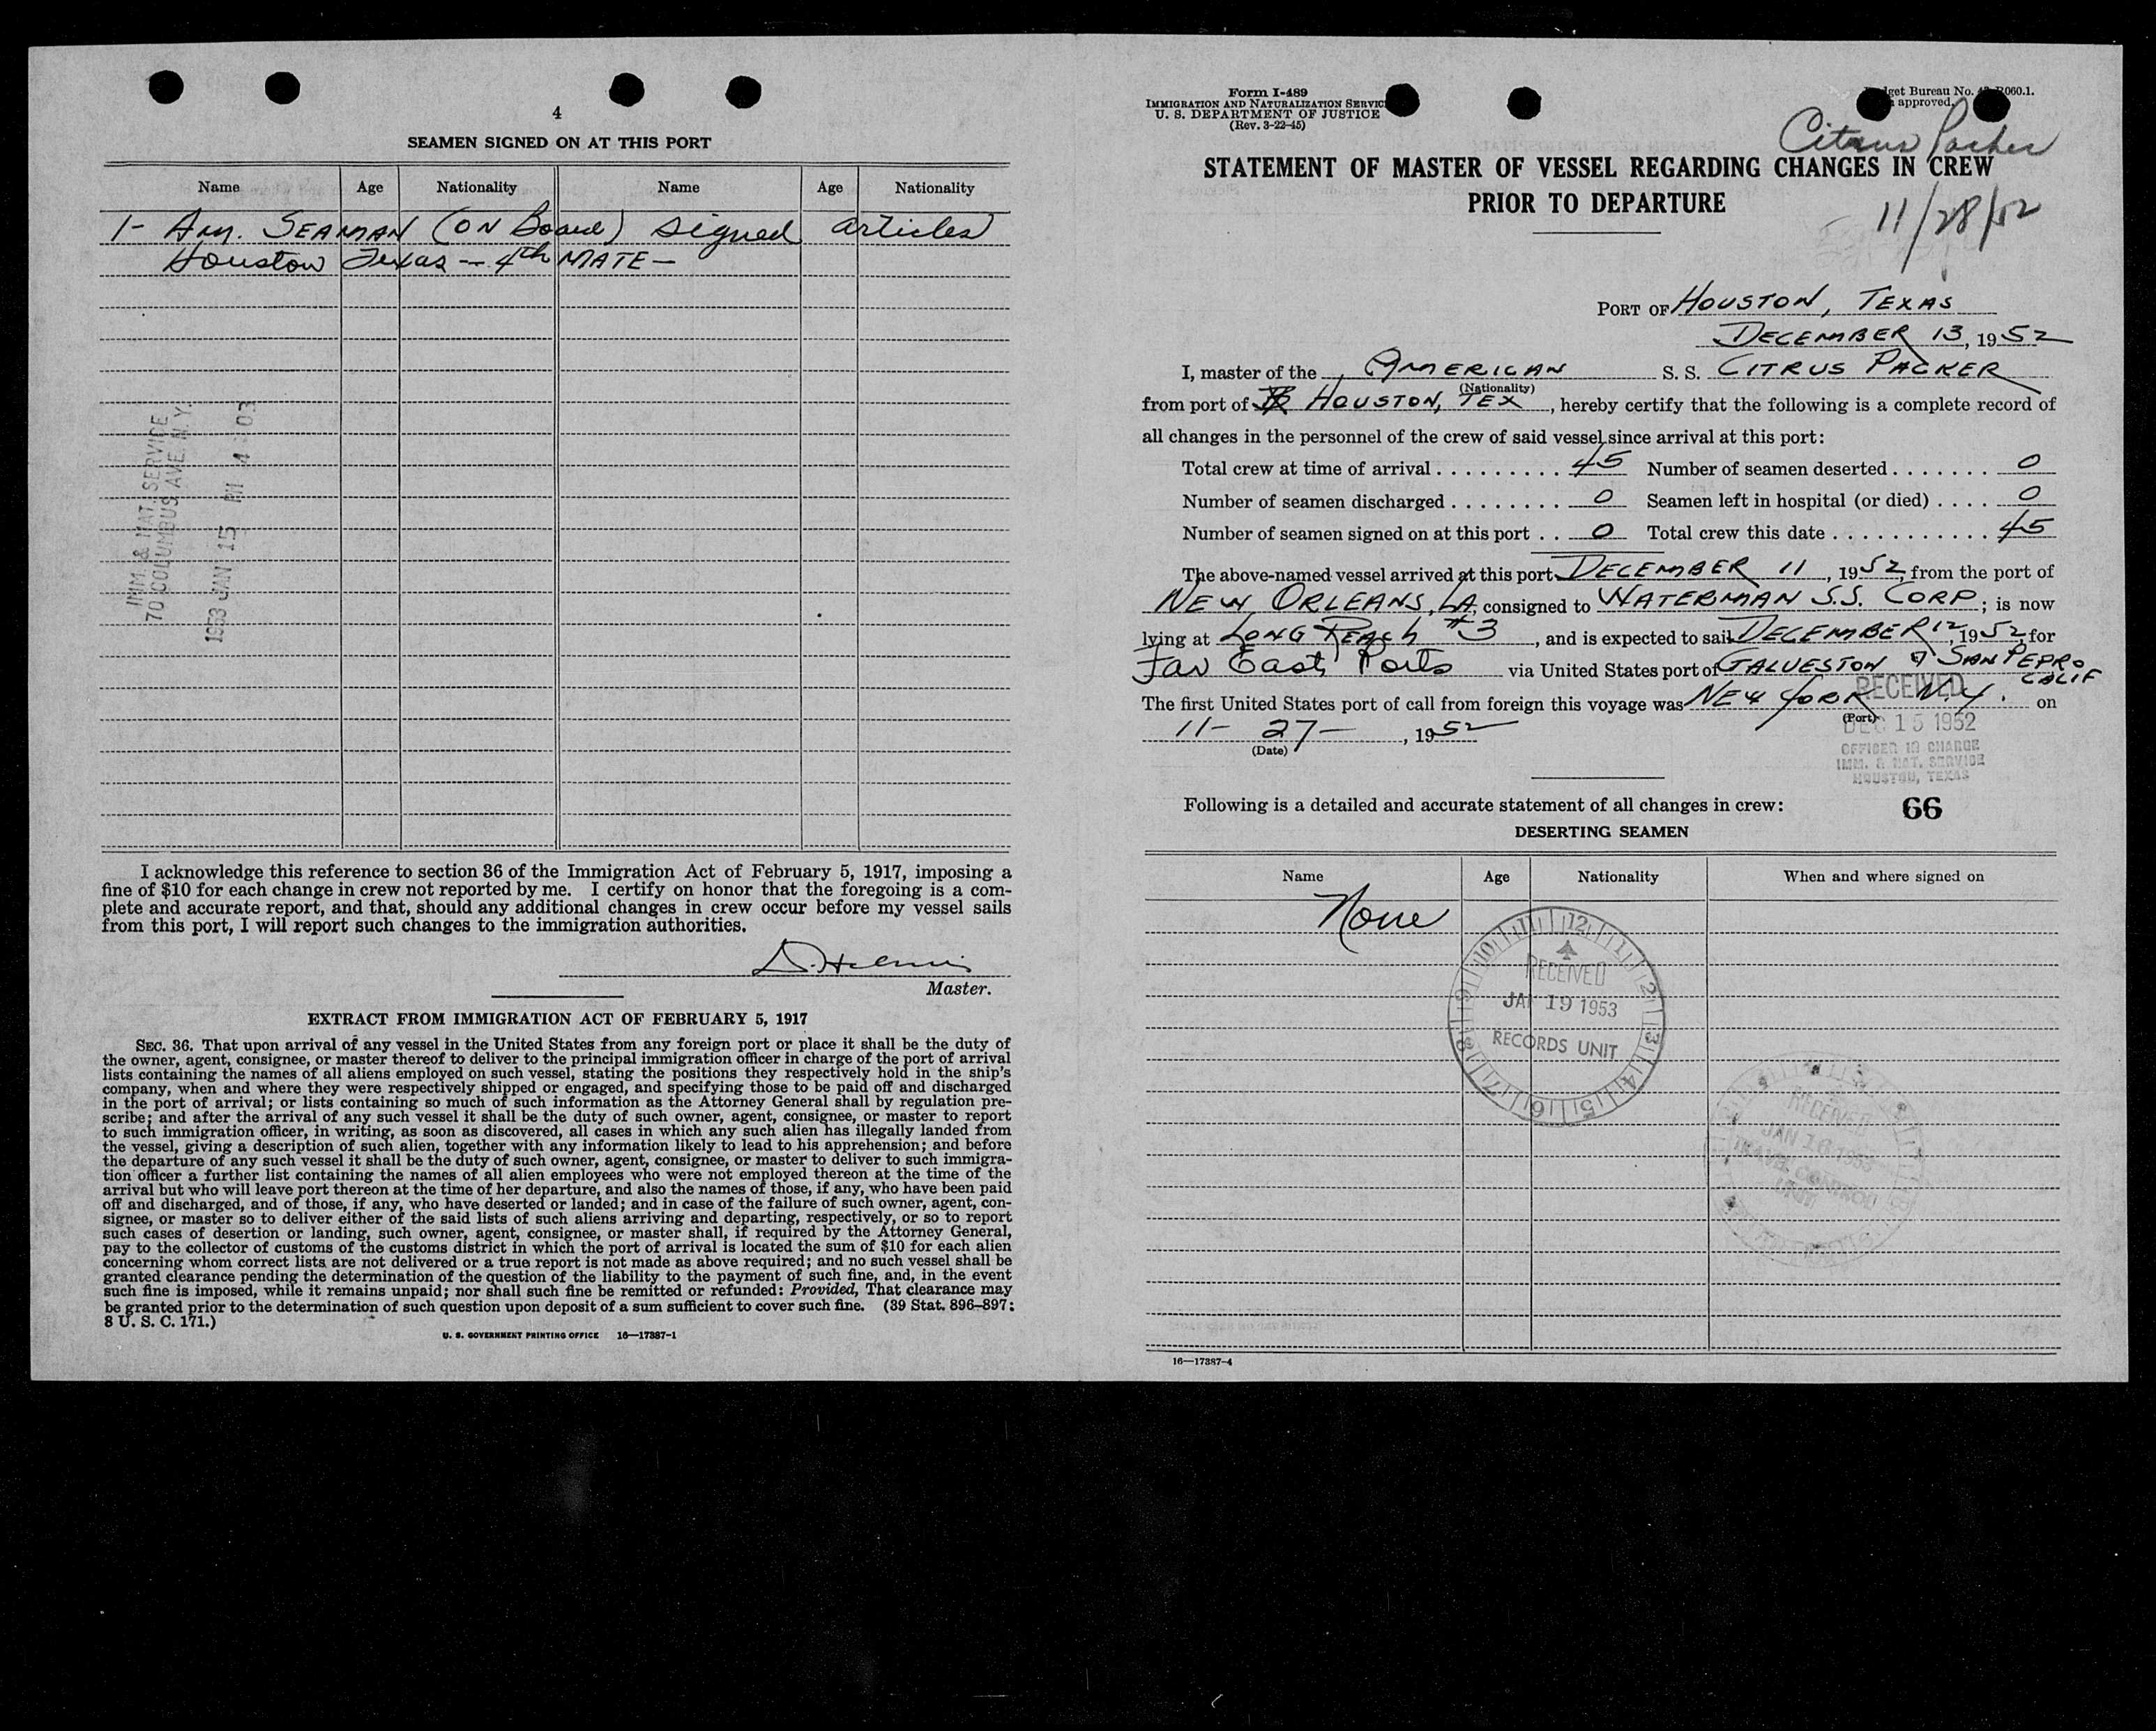 4
SEAMEN SIGNED ON AT THIS PORT
Name Age Nationality Name Age Nationality
1- Am. SEAMAN (ON Board) signed articles
Houston Texas — 4th MATE —
IMM. & NAT. SERVICE
70 COLUMBUS AVE. N.Y.
1953 JAN 15 PM 4:03
I acknowledge this reference to section 36 of the Immigration Act of February 5, 1917, imposing a
fine of $10 for each change in crew not reported by me. I certify on honor that the foregoing is a com-
plete and accurate report, and that, should any additional changes in crew occur before my vessel sails
from this port, I will report such changes to the immigration authorities.
Master.
EXTRACT FROM IMMIGRATION ACT OF FEBRUARY 5, 1917
SEC. 36. That upon arrival of any vessel in the United States from any foreign port or place it shall be the duty of
the owner, agent, consignee, or master thereof to deliver to the principal immigration officer in charge of the port of arrival
lists containing the names of all aliens employed on such vessel, stating the positions they respectively hold in the ship's
company, when and where they were respectively shipped or engaged, and specifying those to be paid off and discharged
in the port of arrival; or lists containing so much of such information as the Attorney General shall by regulation pre-
scribe; and after the arrival of any such vessel it shall be the duty of such owner, agent, consignee, or master to report
to such immigration officer, in writing, as soon as discovered, all cases in which any such alien has illegally landed from
the vessel, giving a description of such alien, together with any information likely to lead to his apprehension; and before
the departure of any such vessel it shall be the duty of such owner, agent, consignee, or master to deliver to such immigra-
tion officer a further list containing the names of all alien employees who were not employed thereon at the time of the
arrival but who will leave port thereon at the time of her departure, and also the names of those, if any, who have been paid
off and discharged, and of those, if any, who have deserted or landed; and in case of the failure of such owner, agent, con-
signee, or master so to deliver either of the said lists of such aliens arriving and departing, respectively, or so to report
such cases of desertion or landing, such owner, agent, consignee, or master shall, if required by the Attorney General,
pay to the collector of customs of the customs district in which the port of arrival is located the sum of $10 for each alien
concerning whom correct lists are not delivered or a true report is not made as above required; and no such vessel shall be
granted clearance pending the determination of the question of the liability to the payment of such fine, and, in the event
such fine is imposed, while it remains unpaid; nor shall such fine be remitted or refunded: Provided, That clearance may
be granted prior to the determination of such question upon deposit of a sum sufficient to cover such fine. (39 Stat. 896–897;
8 U. S. C. 171.)
U. S. GOVERNMENT PRINTING OFFICE 16—17387-1
Form I-489
IMMIGRATION AND NATURALIZATION SERVICE
U. S. DEPARTMENT OF JUSTICE
(Rev. 3-22-45)
Bureau No. R060.1.
approved.
Citrus Packer
STATEMENT OF MASTER OF VESSEL REGARDING CHANGES IN CREW
PRIOR TO DEPARTURE
11/28/52
PORT OF HOUSTON, TEXAS
DECEMBER 13, 1952
I, master of the AMERICAN S. S. CITRUS PACKER
(Nationality)
from port of HOUSTON, TEX, hereby certify that the following is a complete record of
all changes in the personnel of the crew of said vessel since arrival at this port:
Total crew at time of arrival . . . . . . . . . 45 Number of seamen deserted . . . . . . . 0
Number of seamen discharged . . . . . . . . 0 Seamen left in hospital (or died) . . . . 0
Number of seamen signed on at this port . . 0 Total crew this date . . . . . . . . . . . 45
The above-named vessel arrived at this port DECEMBER 11, 1952, from the port of
NEW ORLEANS, LA, consigned to WATERMAN S.S. CORP; is now
lying at LONG REACH #3, and is expected to sail DECEMBER 12, 1952, for
Far East Ports via United States port of GALVESTON & SAN PEDRO
CALIF
The first United States port of call from foreign this voyage was NEW YORK N.Y. on
(Port)
11- 27-, 1952
(Date)
RECEIVED
DEC 15 1952
OFFICER IN CHARGE
IMM. & NAT. SERVICE
HOUSTON, TEXAS
Following is a detailed and accurate statement of all changes in crew:
66
DESERTING SEAMEN
Name Age Nationality When and where signed on
None
12 1 2 3 4 5 6 7 8 9 10 11
RECEIVED
JAN 19 1953
RECORDS UNIT
RECEIVED
JAN 16 1953
TRAVEL CONTROL
UNIT
16—17387-4